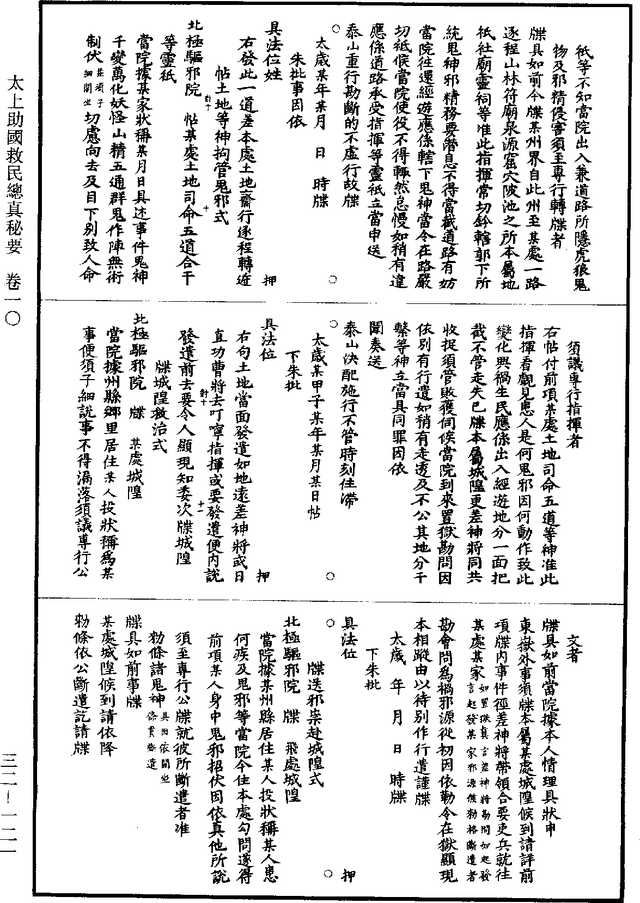 太上助國救民總真秘要　卷一〇
三二－一二一
祇等不知當院出入兼道路所隱虎狼鬼
物及邪精侵害須至專行轉牒者
牒具如前今牒某州界自此州至某處一路
逐程山林符廟泉源窟穴陂池之所本屬地
祇社廟靈祠等唯此指揮當切鈐轄郭下所
統鬼神邪精務要潛息不得當截道路有妨
當院往還經遊應係轄下鬼神當令在路嚴
切祗候當院使役不得輒然怠慢如稍有違
應係道路承受指揮等靈祇立當申送
泰山重行勘斷的不虛行故牒
太歲某年某月　日　時牒
朱批事因依
具法位姓　押
右發此一道差本處土地齎行逐程轉近
帖土地等神拘管鬼邪式
北極驅邪院　帖某處土地司命五道合干
等靈祇
當院據某家狀稱某月日具述事件鬼神
千變萬化妖怪山精五通群鬼作陣無術
制伏某項子細開坐切處向去及目下別致人命
須議專行指揮者
右帖付前項某處土地司命五道等神准此
指揮看覷見患人是何鬼邪因何動作致此
變化興禍生民應係出入經遊地分一面把
截不管走失已牒本屬城隍更差神將同共
收捉須管敗獲伺候當院到來置獄勘問因
依別有行遣如稍有走透及不公其地分干
繫等神立當具同罪因依
聞奏送
泰山決配施行不管時刻住滯
太歲某甲子某年某月某日帖
下朱批
具法位　押
右句土地當面發遣如地遠差神將或日
直功曹將去叮嚀指揮或要發遣便內說
發遣前去要令人顯現知委次牒城隍
牒城隍救治式
北極驅邪院　牒　某處城隍
當院據州縣鄉里居住某人投狀稱為某
事便須子細說事不得漏落須議專行公
文者
牒具如前當院據本人情理具狀申
東嶽外事須牒本屬某處城隍候到請詳前
項牒內事件徑差神將帶領合要吏兵就往
某處某家
勘會問為禍邪源從初因依勒令在獄顯現
本相蹤由以待別作行遣謹牒
太歲　年　月　日　時牒
下朱批
具法位　押
牒送邪祟赴城隍式
北極驅邪院　牒　飛處城隍
當院據某州縣居住某人投狀稱某人患
何疾及鬼邪等當院今住本處勾問遂得
前項某人身中鬼邪招伏因依真他所說
須至專行公牒就彼所斷遣者准
勑條諸鬼神
牒具如前事牒
某處城隍候到請依降
勑條依公斷遣訖請牒